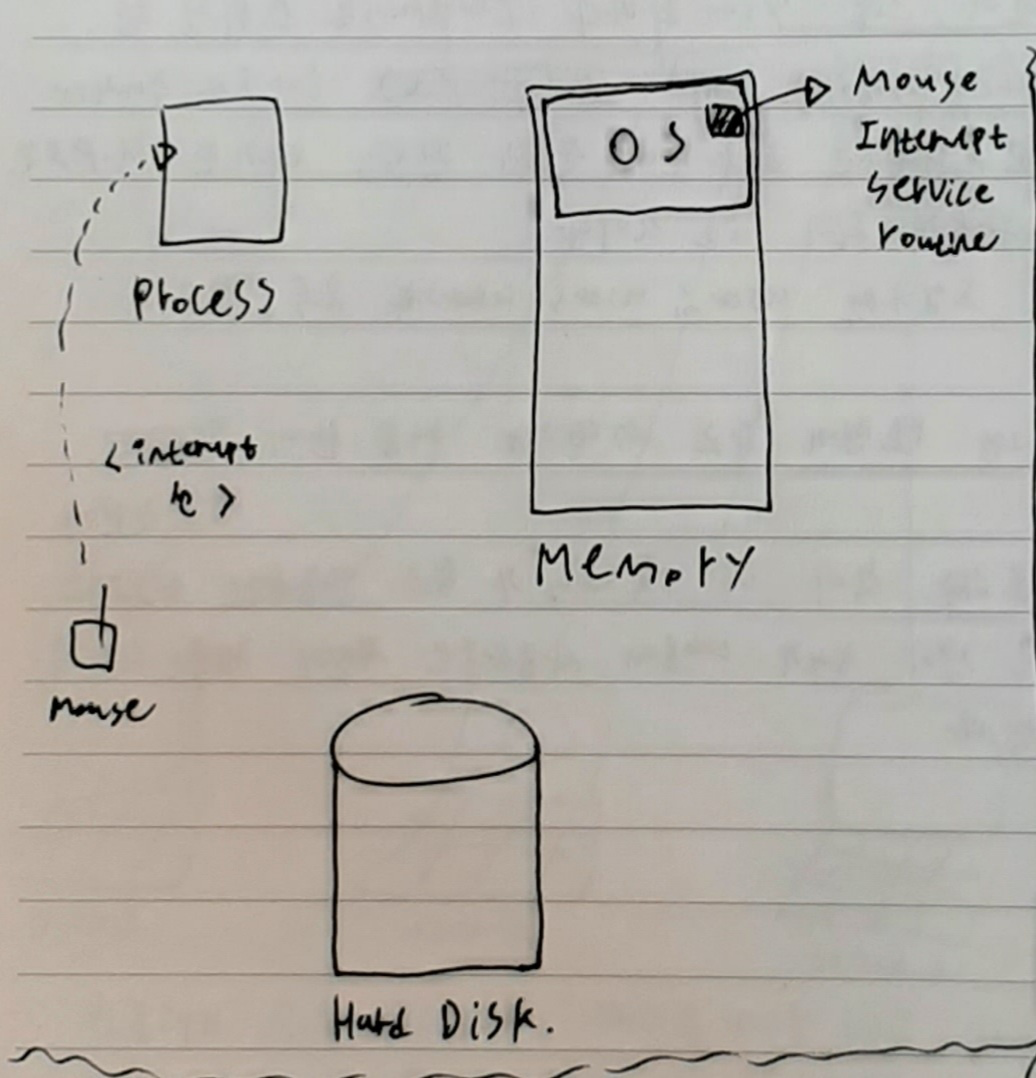 Mouse
Interrupt
Service
routine
OS
Process
<interrupt
>
Memory
Mouse
Hard Disk.